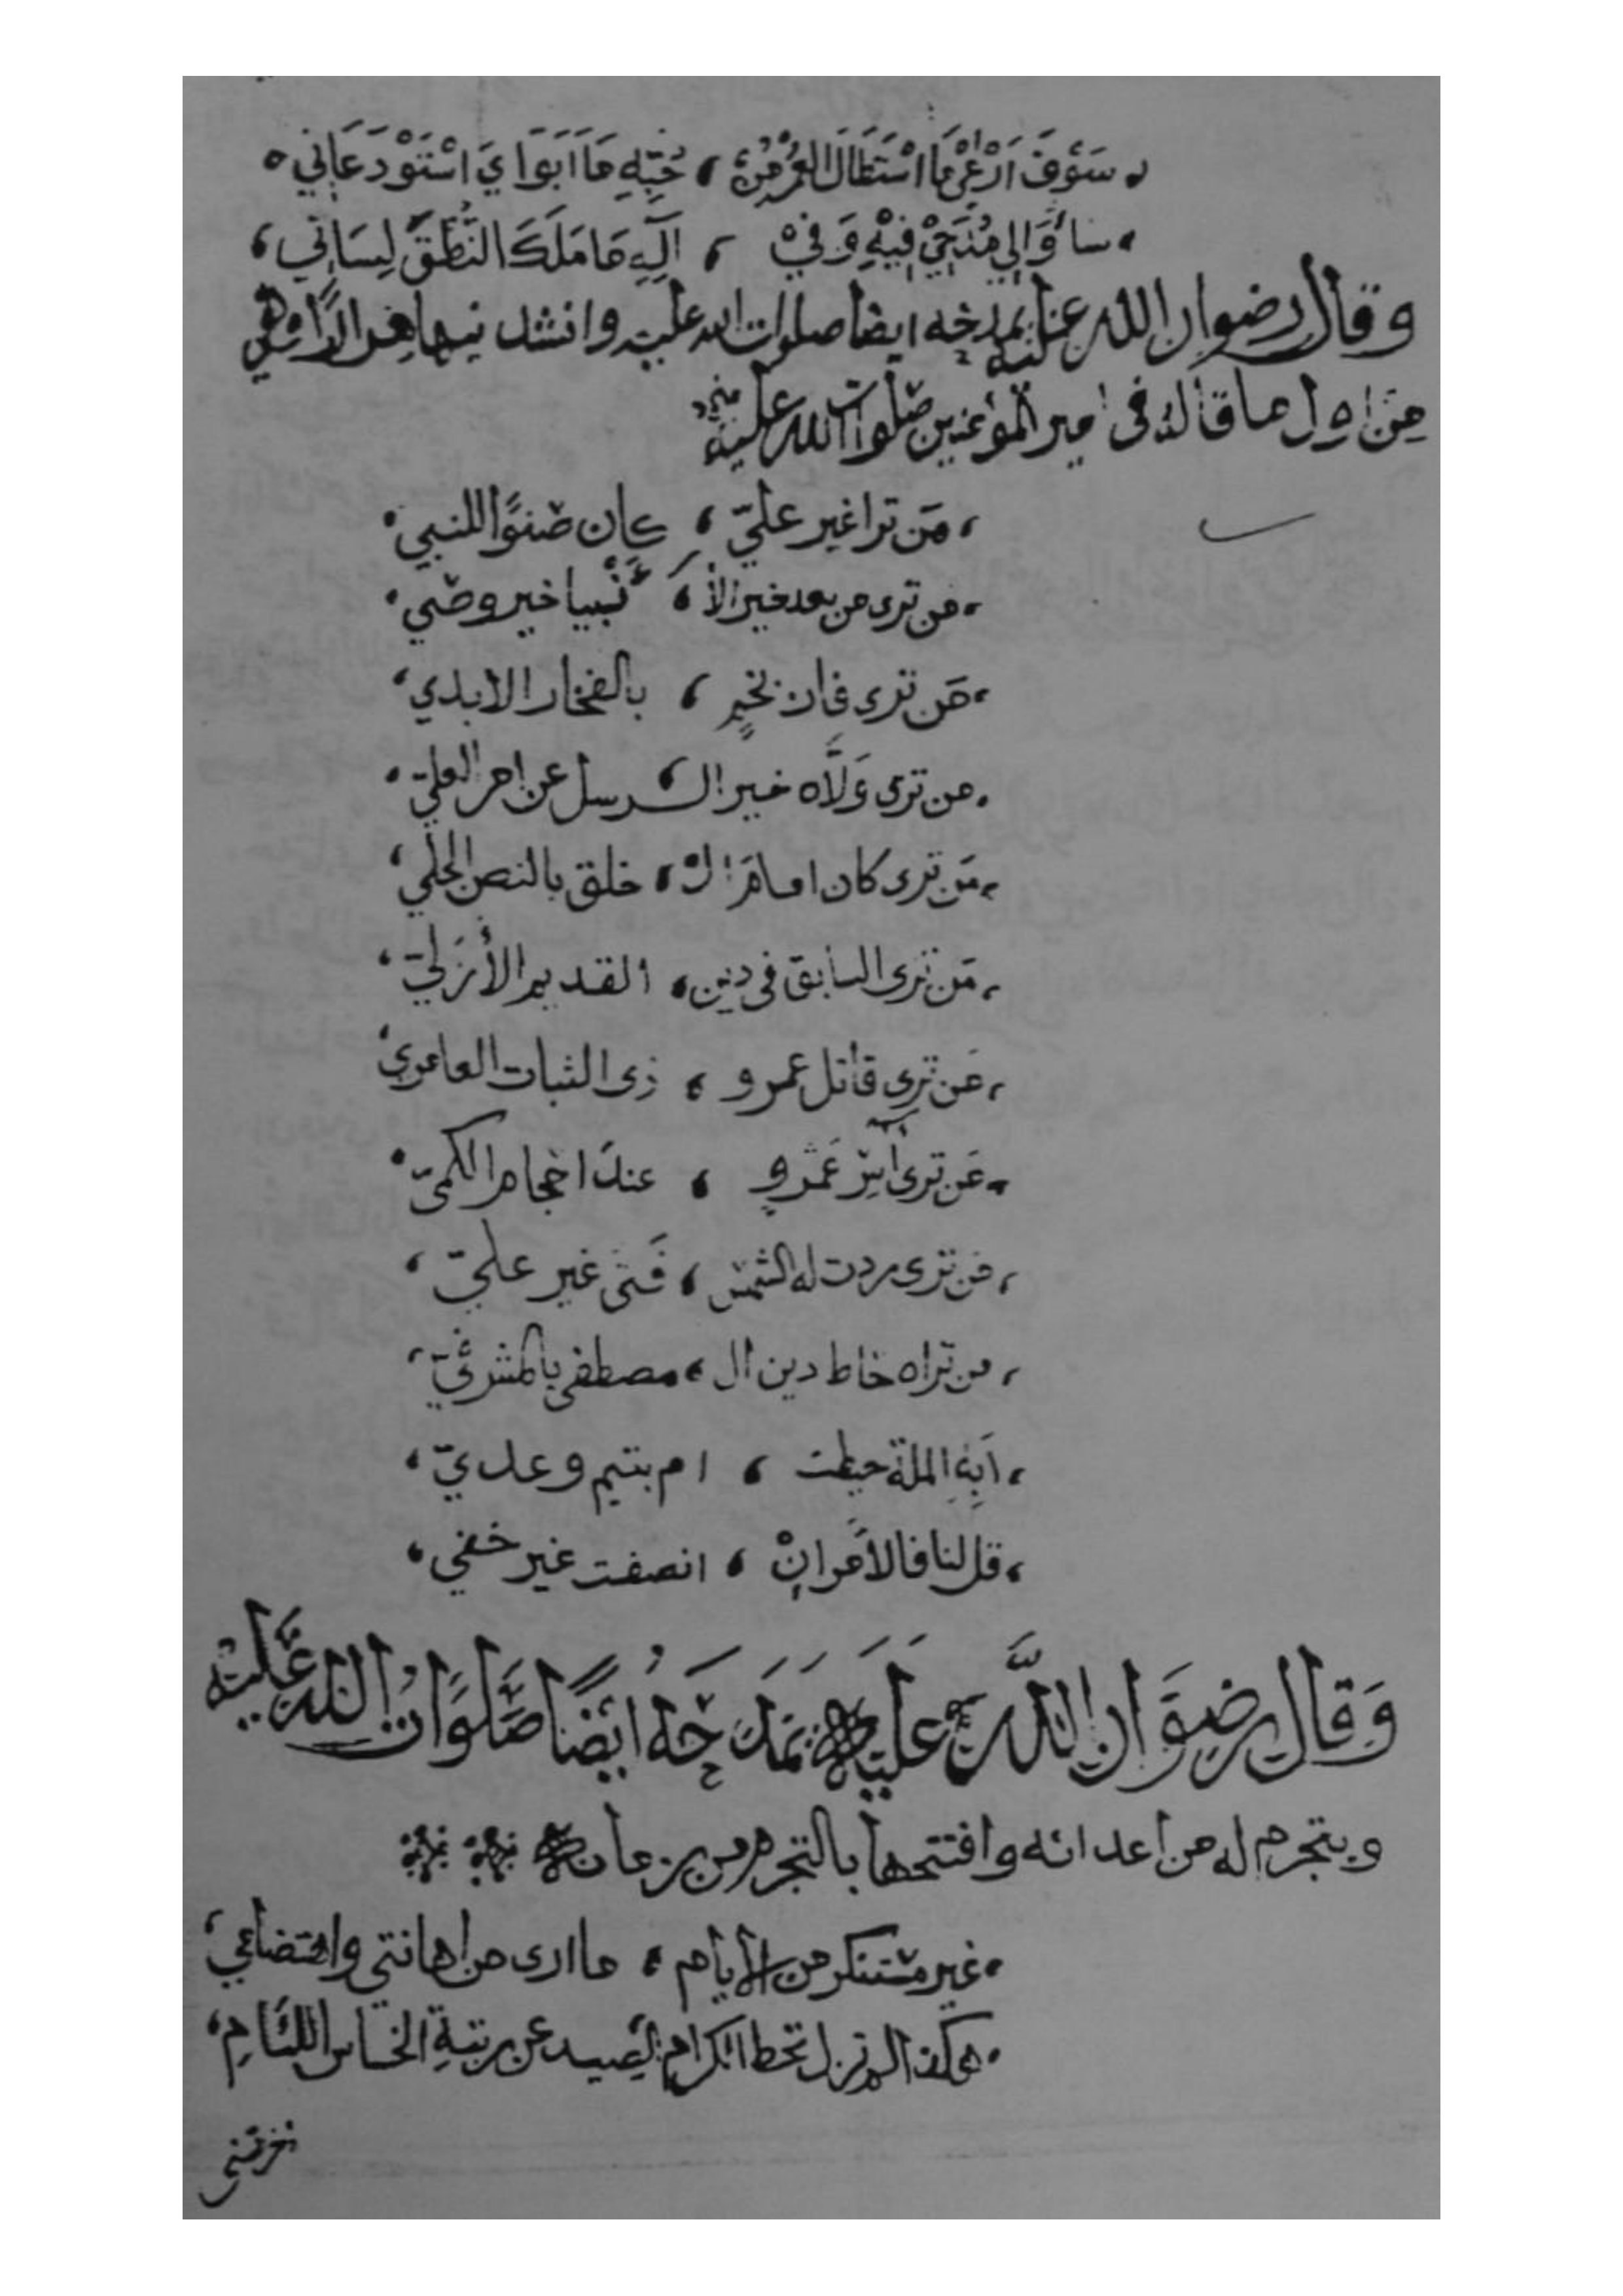 سَوْفَ اَرْعَى مَا اسْتَطَالَ العُمْرُ مِنْ ، حُبِّهِ مَا اَبَوَايَ اسْتَوْدَعَانِي
سأوَالي مُنْتَجَيْ فِيْهِ وَفِيْ ، آلِهِ مَا مَلَكَ النُّطْقَ لِسَانِي ،
وقال رضوان الله علينه يمدحه ايضا صلوات الله عليه وانشد
مِن اول ما قاله فى امير المؤمنين صلوات الله عليه
، مَن ترا غير عليّ ، كان صنوًا للنبي
، من ترى من بعد خير الأ ، نْبيا خير وصي
، مَن ترى فاز بخمٍ ، بالفخار الابدي ،
من ترى وَلَّاه خير الـ ، ـرسل عن امر العليّ
، مَن ترى كان امامَ الـ ، خلق بالنص الجلي ،
، مَن ترى السابق فى دين ، القديم الأزَليّ ،
، مَن ترى قاتل عمرو ، ذى الثبات العامري ،
مَن ترى آسِرَ عَمْرٍو ، عند احجام الكميّ
، من ترى ردت له الشمس ، فَتى غير عليّ ،
، من تراه حاط دين ال ، مصطفى بالمشرفيّ ،
، اَبِهِ الملة حيطت ، ام بتيم وعديّ ،
، قل لنا فالأمر انْ ، انصفت غير خفي ،
وَقال رضوَان اللَّه عليه يمْدَحه ايضًا صَلَوَاتُ الله عَليْه
ويتجرم له من اعدائه وافتتحها بالتجرم من زمانه
، غير مستنكر من الأيام ، ما ارى من اهانتى واهتضامي ،
هكذا لم تزل تحط الكرام الصيد عن رتبةِ الخساس اللئامِ ،